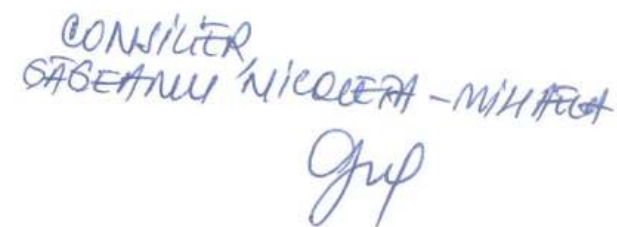 CONSILIER,
GĂGEANU NICOLETA-MIHAELA